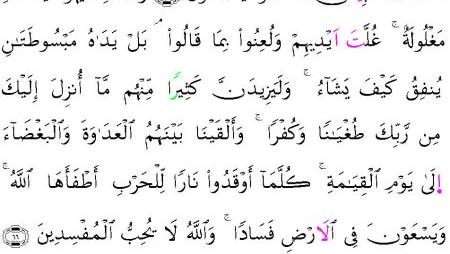 مَغْلُولَةٌ ۚ غُلَّتَ اَيْدِيهِمْ وَلُعِنُوا۟ بِمَا قَالُوا۟ ۘ بَلْ يَدَٰهُ مَبْسُوطَتَٰنِ
يُنفِقُ كَيْفَ يَشَآءُ ۚ وَلَيَزِيدَنَّ كَثِيرًا مِّنْهُم مَّآ أُنزِلَ إِلَيْكَ
مِن رَّبِّكَ طُغْيَٰنًا وَكُفْرًا ۚ وَأَلْقَيْنَا بَيْنَهُمُ ٱلْعَدَٰوَةَ وَٱلْبَغْضَآءَ
إِلَىٰ يَوْمِ ٱلْقِيَٰمَةِ ۚ كُلَّمَآ أَوْقَدُوا۟ نَارًا لِّلْحَرْبِ أَطْفَأَهَا ٱللَّهُ ۚ
وَيَسْعَوْنَ فِى ٱلَارْضِ فَسَادًا ۚ وَٱللَّهُ لَا يُحِبُّ ٱلْمُفْسِدِينَ ٦٦